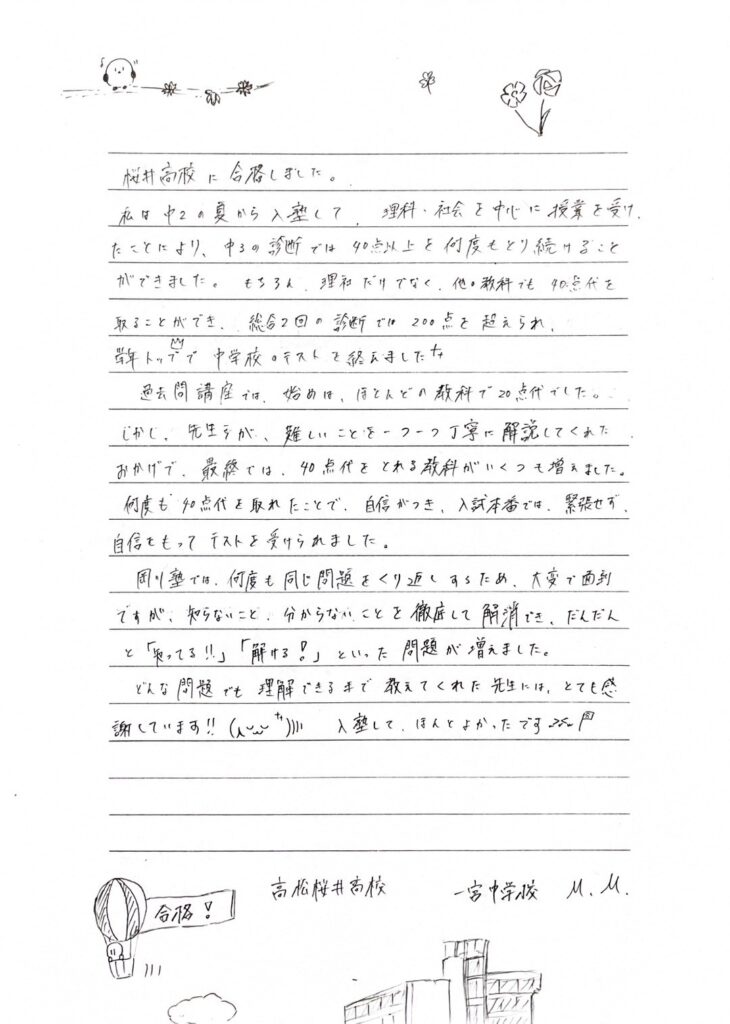 桜井高校に合格しました。
私は中2の夏から入塾して、理科・社会を中心に授業を受け、
たことにより、中3の診断では40点以上を何度もとり続けること
ができました。もちろん、理社だけでなく、他の教科でも40点代を
取ることができ、総合2回の診断では200点を超えられ、
学年トップで中学校のテストを終えました
過去問講座では、始めは、ほとんどの教科で20点代でした。
しかし、先生方が、難しいことを一つ一つ丁寧に解説してくれた
おかげで、最終では、40点代をとれる教科がいくつも増えました。
何度も40点代を取れたことで、自信がつき、入試本番では、緊張せず、
自信をもってテストを受けられました。
岡川塾では、何度も同じ問題をくり返しするため、大変で面倒
ですが、知らないこと、分からないことを徹底して解消でき、だんだん
と「知ってる!!」「解ける!」といった問題が増えました。
どんな問題でも理解できるまで教えてくれた先生には、とても感
謝しています!! 入塾して、ほんとよかったです
合格!
高松桜井高校 一宮中学校 M.M.